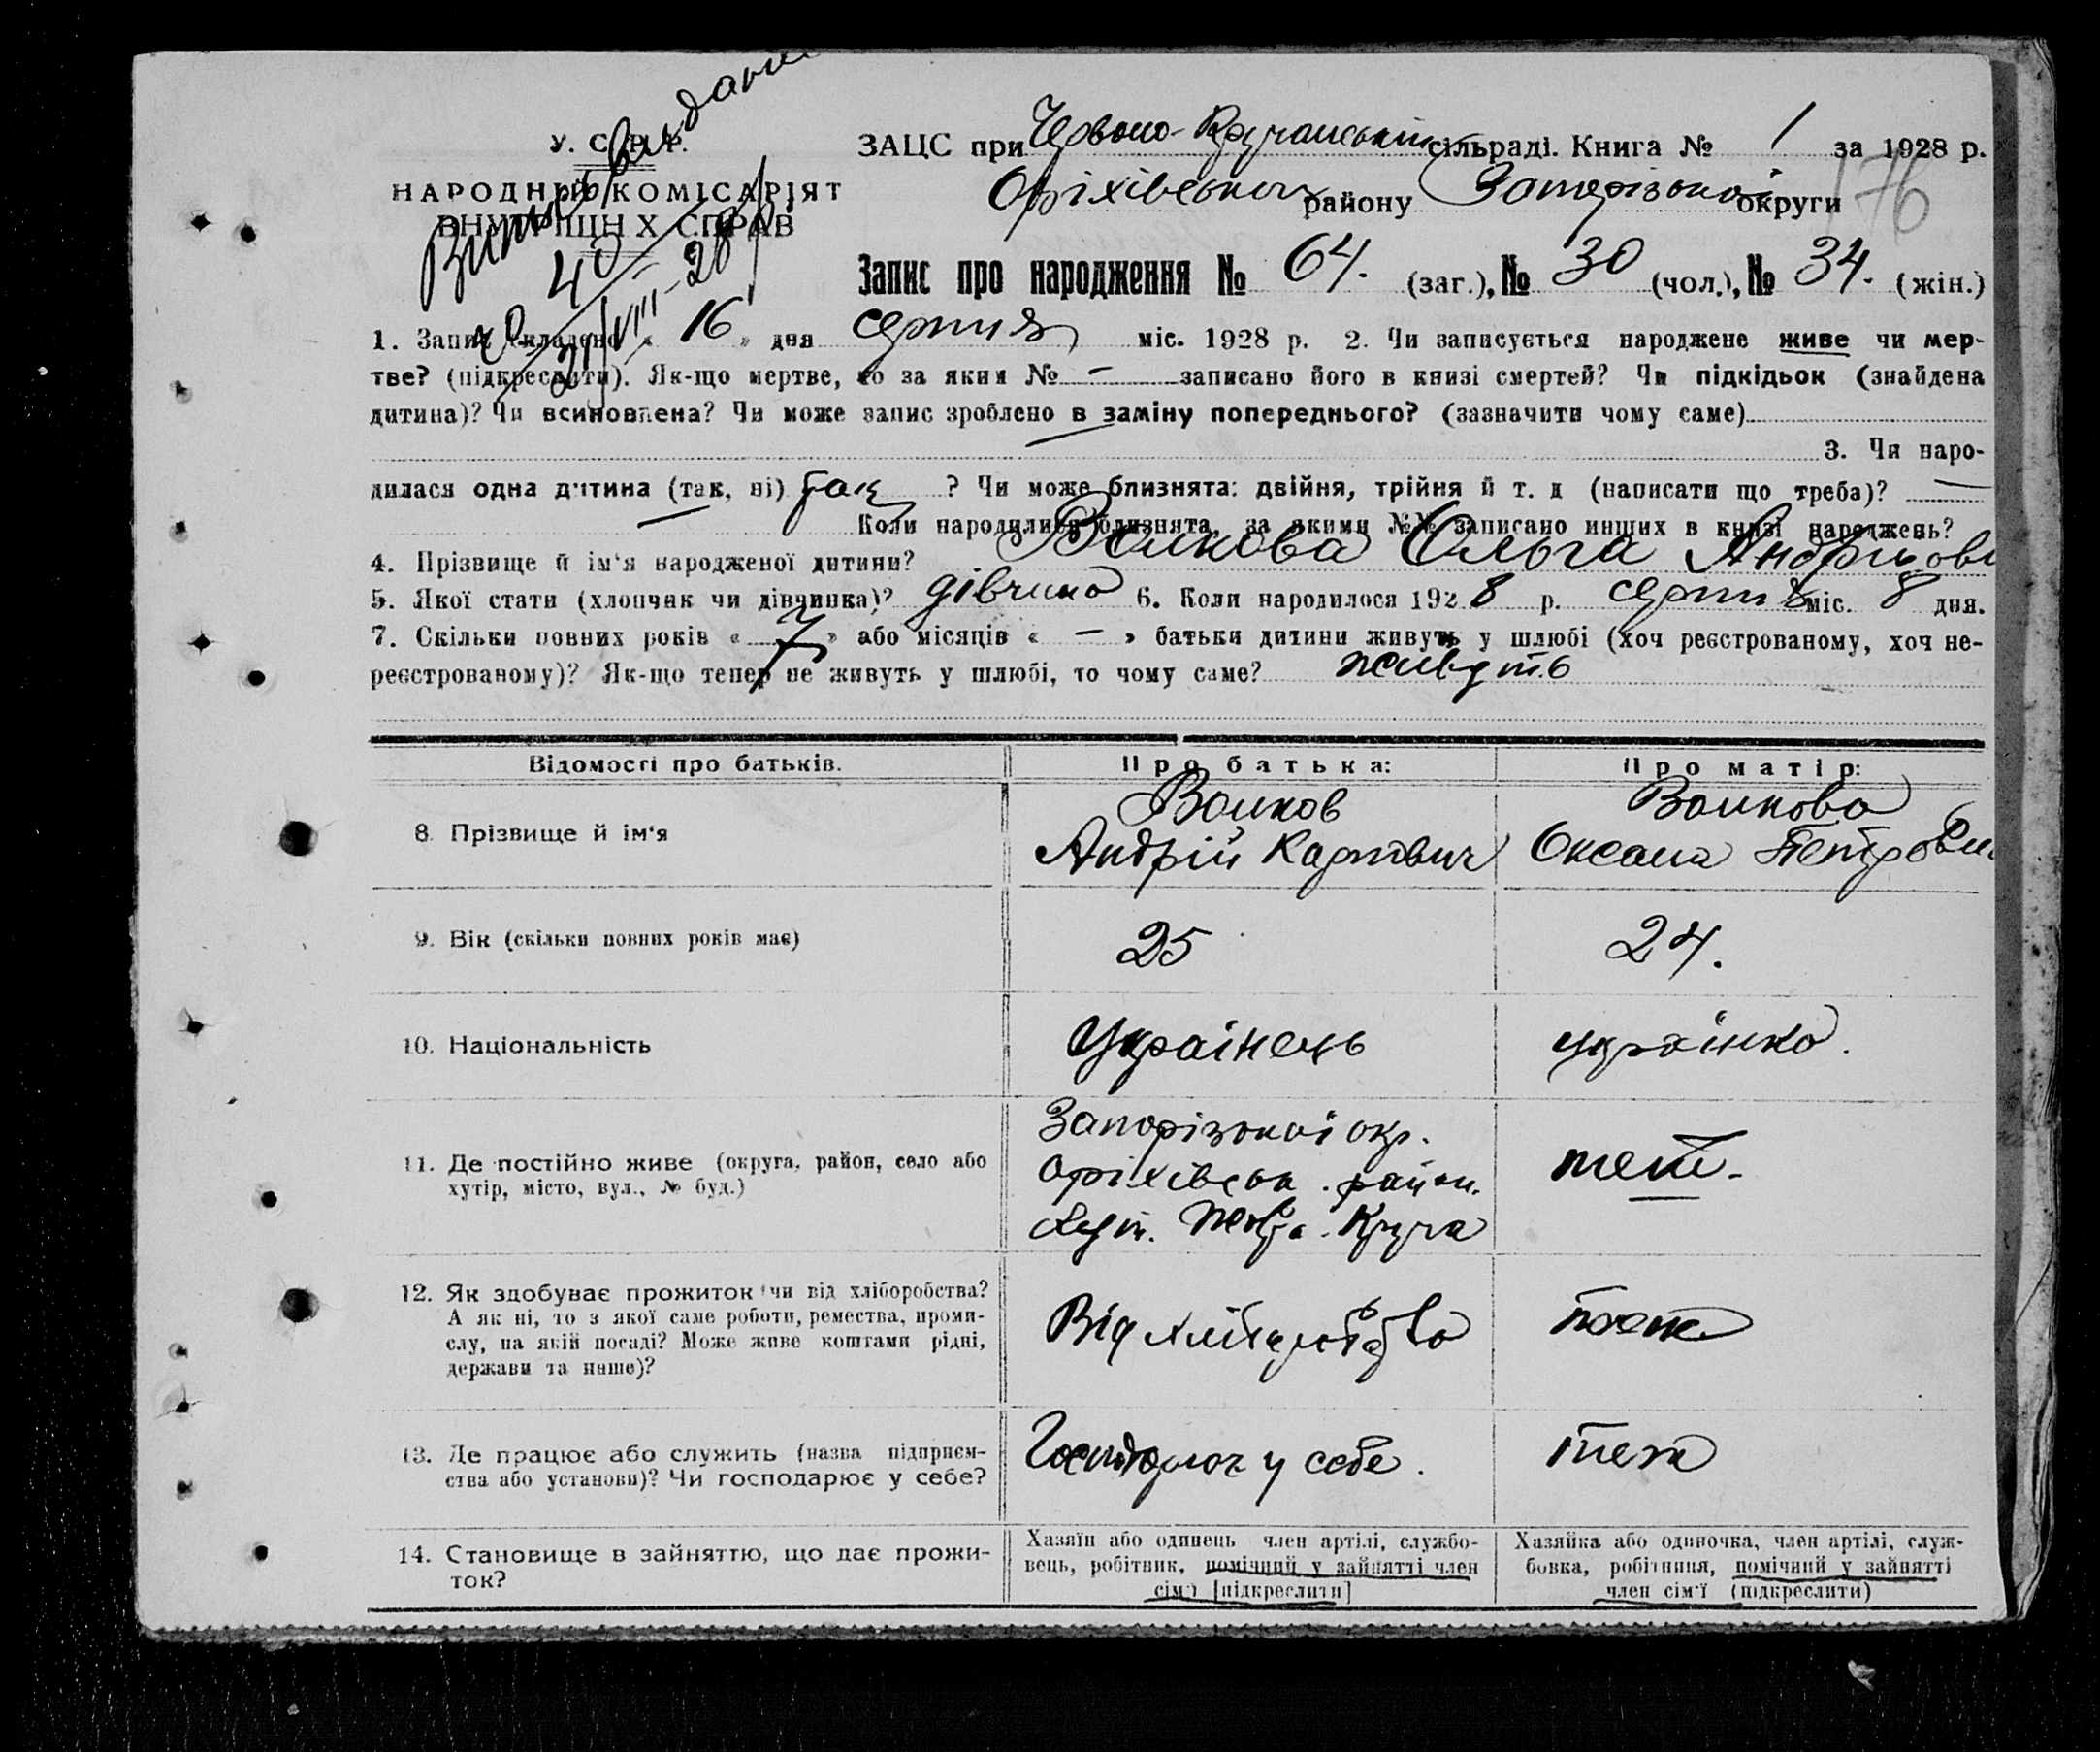 У. С. Р. Р.
НАРОДНИЙ КОМІСАРІЯТ
ВНУТРІШНІХ СПРАВ
ЗАЦС при Червоно-Кручанській сільраді. Книга № 1 за 1928 р.
Оріхівського району Запорізької округи 176
Запис про народження № 64. (заг.), № 30 (чол.), № 34. (жін.)
1. Запис складено « 16 » дня серпня міс. 1928 р. 2. Чи записується народжене живе чи мер-
тве? (підкреслити). Як-що мертве, то за яким № - записано його в книзі смертей? Чи підкідьок (знайдена
дитина)? Чи всиновлена? Чи може запис зроблено в заміну попереднього? (зазначити чому саме)
— 3. Чи наро-
дилася одна дитина (так, ні) так ? Чи може близнята: двійня, трійня й т. д (написати що треба)? —
— Коли народилися близнята, за якими №№ записано инших в книзі народжень?
4. Прізвище й ім'я народженої дитини? Волкова Ольга Андріїов
5. Якої стати (хлопчик чи дівчинка)? дівчина 6. Коли народилося 1928 р. серпня міс. 8 дня.
7. Скільки повних років « 7 » або місяців « — » батьки дитини живуть у шлюбі (хоч реєстрованому, хоч не-
реєстрованому)? Як-що тепер не живуть у шлюбі, то чому саме? живуть
Відомості про батьків. Про батька: Про матір:
8. Прізвище й ім'я Волков Андрій Карпович Волкова Оксана Петрови
9. Вік (скільки повних років має) 25 24.
10. Національність Українець українка.
11. Де постійно живе (округа, район, село або
хутір, місто, вул., № буд.)
Запорізької окр.
Оріхівськ. район.
Хут. Круча
теж.
12. Як здобуває прожиток чи від хліборобства?
А як ні, то з якої саме роботи, ремества, проми-
слу, на якій посаді? Може живе коштами рідні,
держави та инше)?
Від хліборобства теж
13. Де працює або служить (назва підприєм-
ства або установи)? Чи господарює у себе?
у себе. теж
14. Становище в зайняттю, що дає прожи-
ток?
Хазяїн або одинець член артілі, службо-
вець, робітник, помічний у зайнятті член
сім'ї [підкреслити]
Хазяйка або одиночка, член артілі, служ-
бовка, робітниця, помічний у зайнятті
член сім'ї (підкреслити)